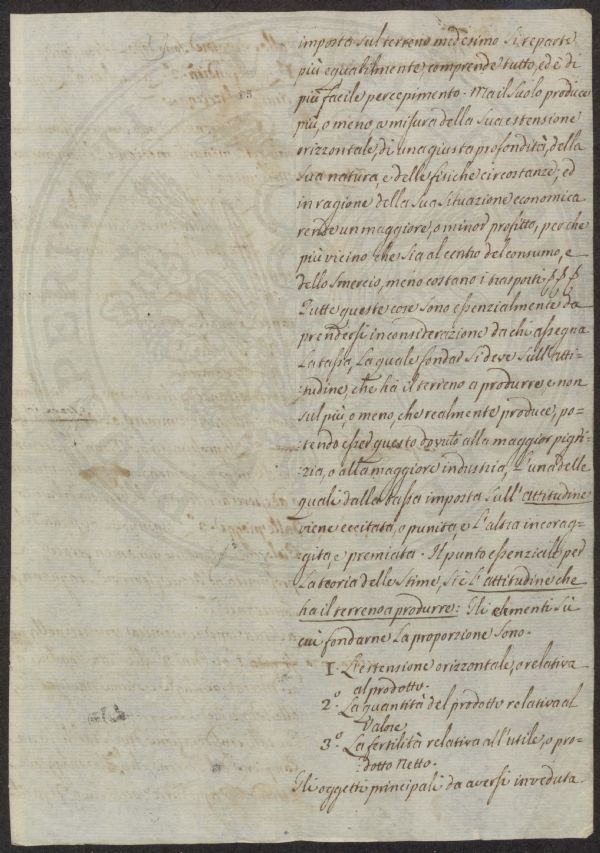 imposta sul terreno medesimo si reparte
più egualmente, comprende tutto, ed è di
più facile percepimento. Ma il Suolo produce
più, o meno a misura della sua estensione
orizzontale, di una giusta profondità, della
sua natura, e delle fisiche circostanze; ed
in ragione della sua situazione economica
rende un maggiore, o minor profitto, perche
più vicino che sia al centro del consumo, e
dello smercio, meno costano i trasporti
Tutte queste cose sono essenzialmente da
prendersi in considerazione da chi assegna
la tassa, la quale fondar si deve sull'atti-
:tudine, che ha il terreno a produrre e non
sul più, o meno, che realmente produce, po-
:tendo esser questo dovuto alla maggior pigri-
:zia, o alla maggiore industria, l'una delle
quali dalla tassa imposta sull'attitudine
viene eccitata, o punita, e l'altra incorag-
gita, e premiata. Il punto essenziale per
la teoria delle stime, si è l'attitudine che
ha il terreno a produrre: Gli elementi su
cui fondarne la proporzione sono.
1. L'estensione orizzontale, o relativa
al prodotto.
2.º La quantità del prodotto relativa al
Valore
3.º La fertilità relativa all'utile, o pro-
:dotto Netto.
Gli oggetti principali da aversi in veduta